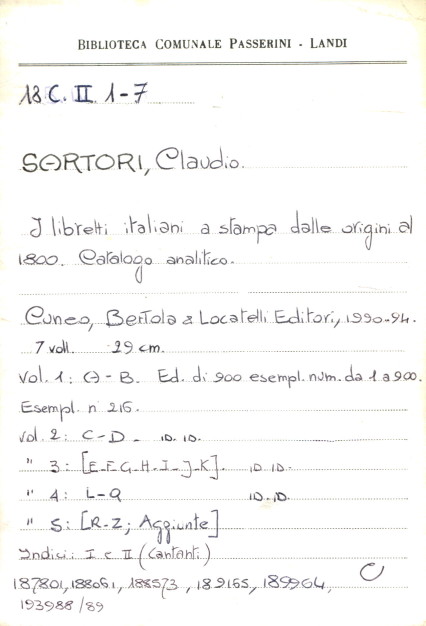 BIBLIOTECA COMUNALE PASSERINI - LANDI
13 C. II. 1-7
SARTORI, Claudio.
I libretti italiani a stampa dalle origini al
1800. Catalogo analitico.
Cuneo, Bertola & Locatelli Editori, 1990-94.
7 voll. 29 cm.
Vol. 1: A - B. Ed. di 900 esempl. num. da 1 a 900.
Esempl. n 216.
vol. 2: C-D - ID. ID.
" 3: [E-F-G-H-I-J-K]. ID. ID.
" 4: L-Q ID. ID.
" 5: [R-Z; Aggiunte]
Indici: I e II (Cantanti)
187801, 188061, 188573, 189165, 189964,
193988/89